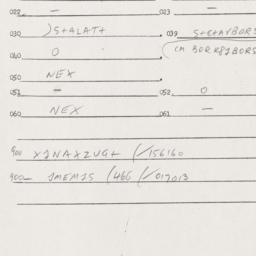 022 — 023 —
030 )S+ALAT+ 039 S+C+AYBORS
040 0 (CM BORK8JBORS
050 NEX
051 — 052 0
060 NEX 061 —
900 XJNAXZUG+ (/156160
900 JMEMJS (466 /017013